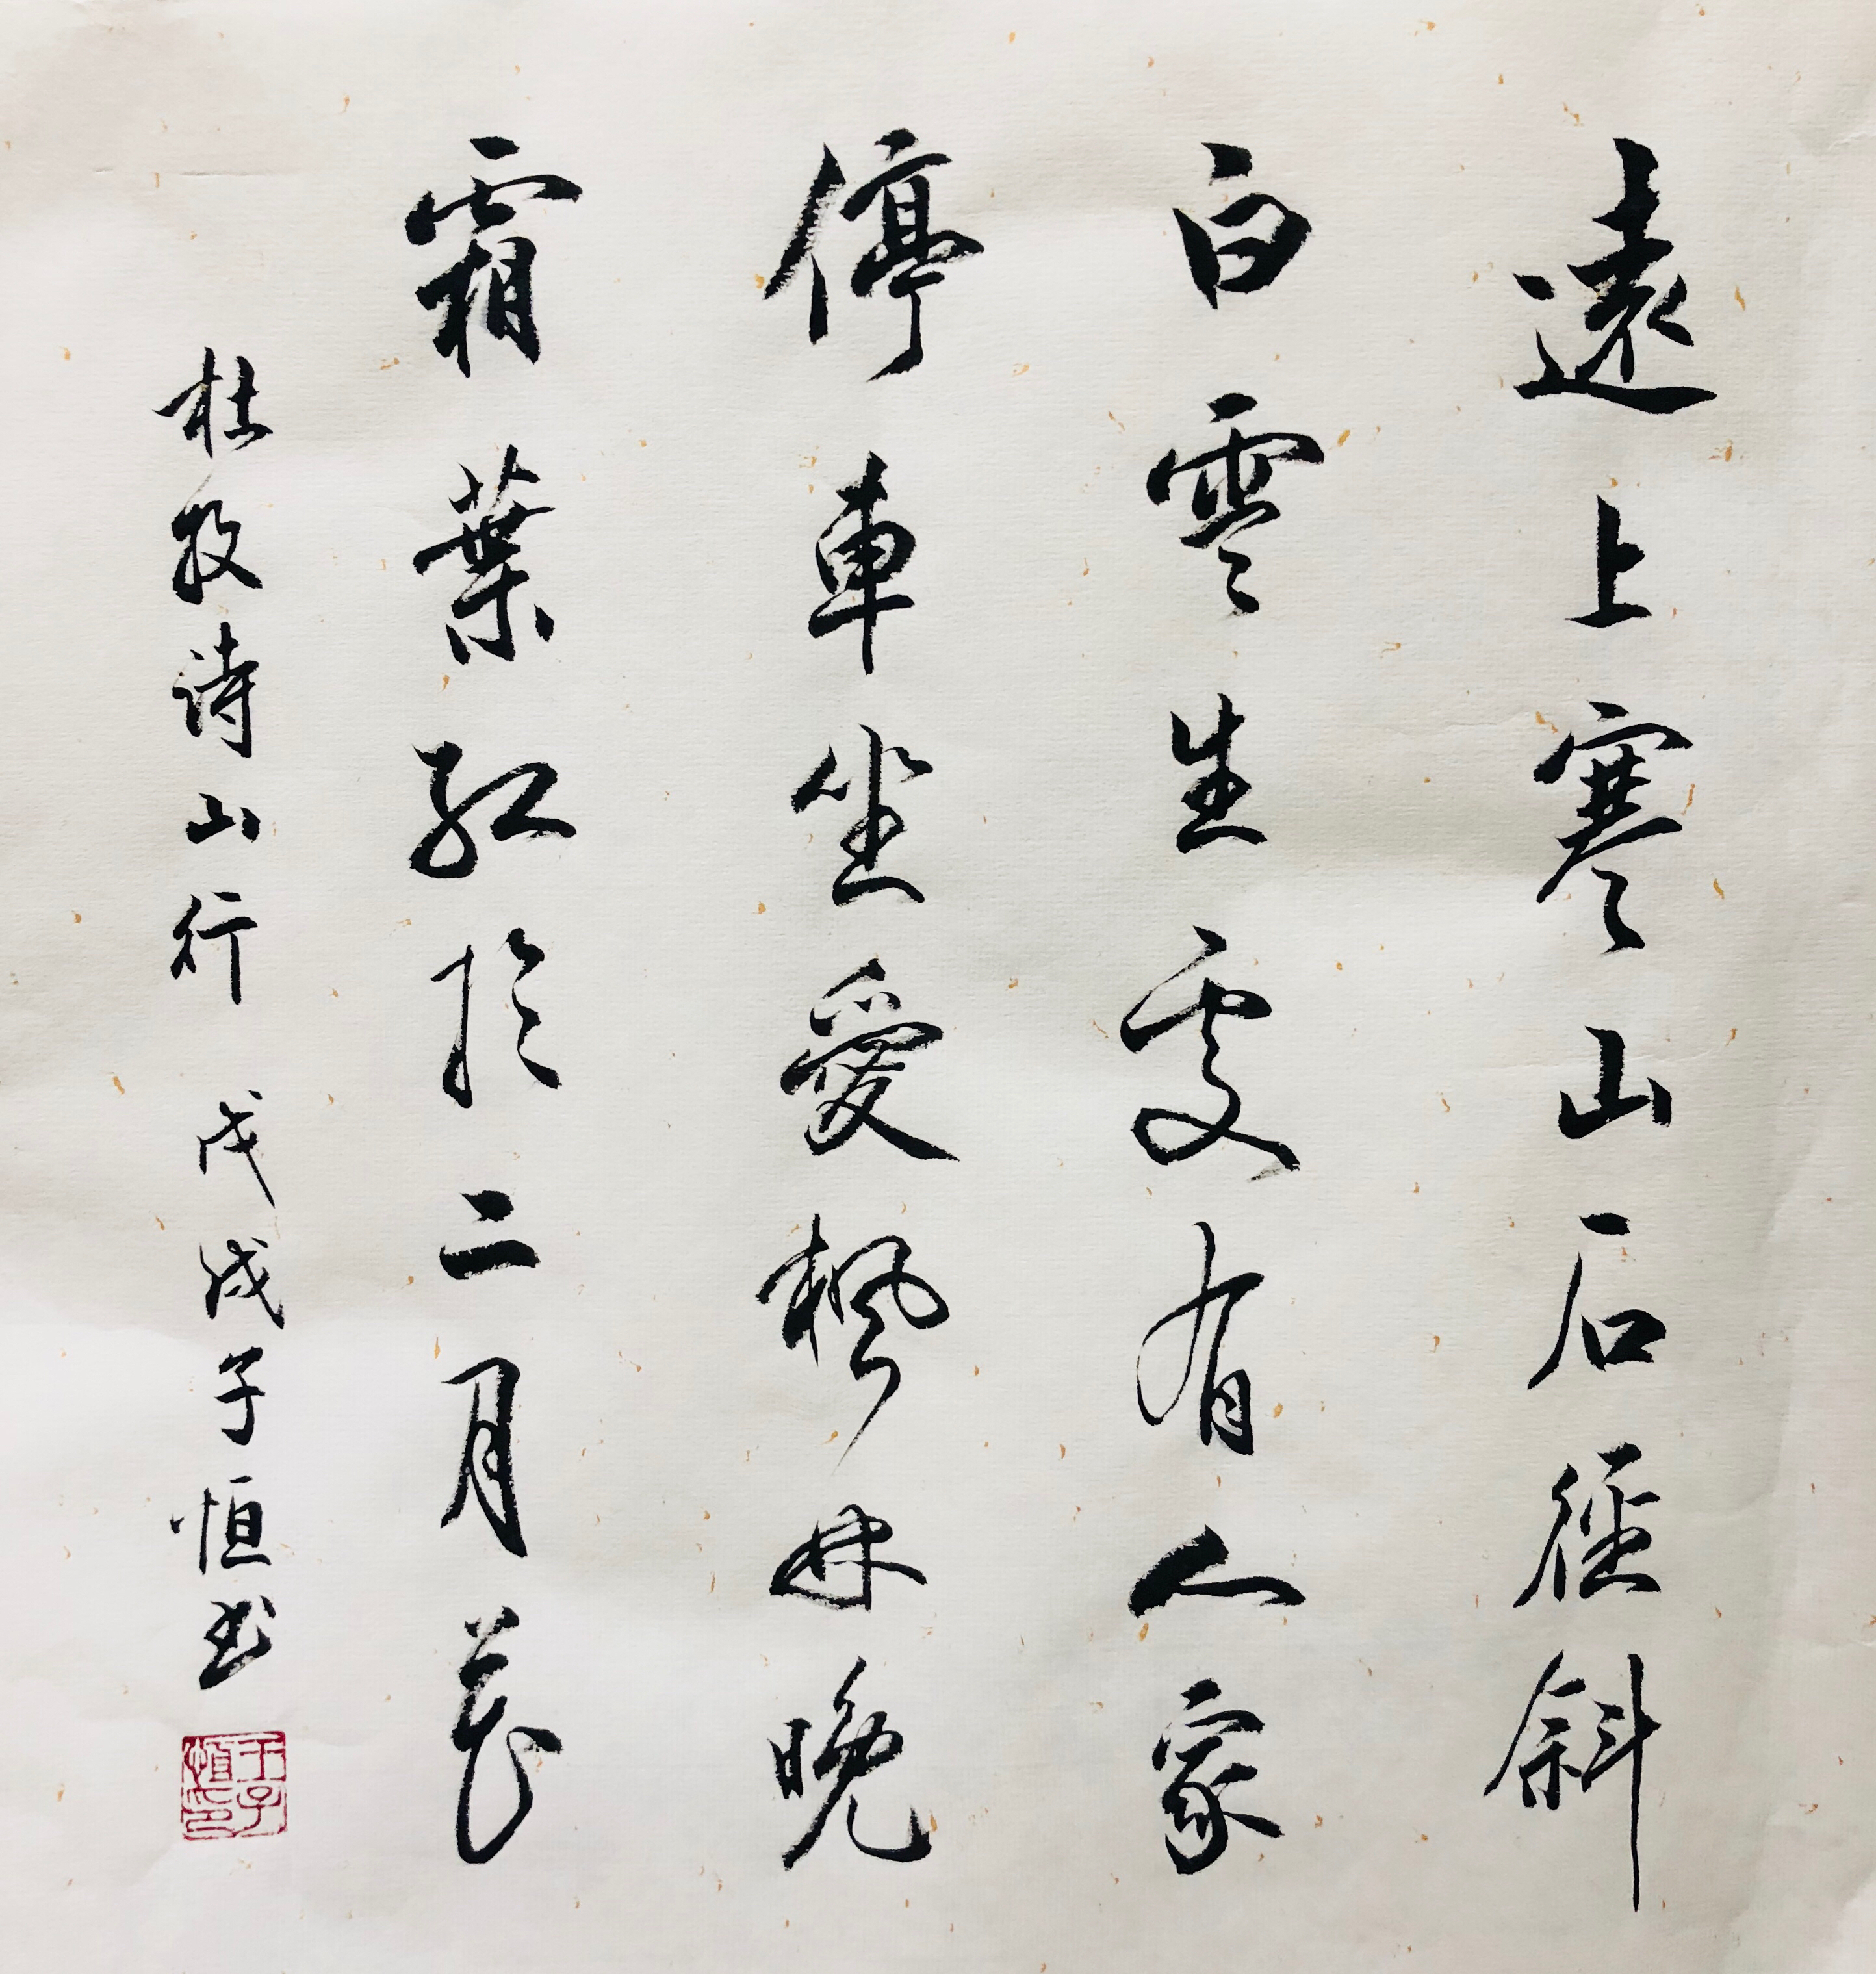 遠上寒山石徑斜
白雲生處有人家
停車坐愛楓林晚
霜葉紅於二月花
杜牧詩山行 戊戌子恒书
王子恒印